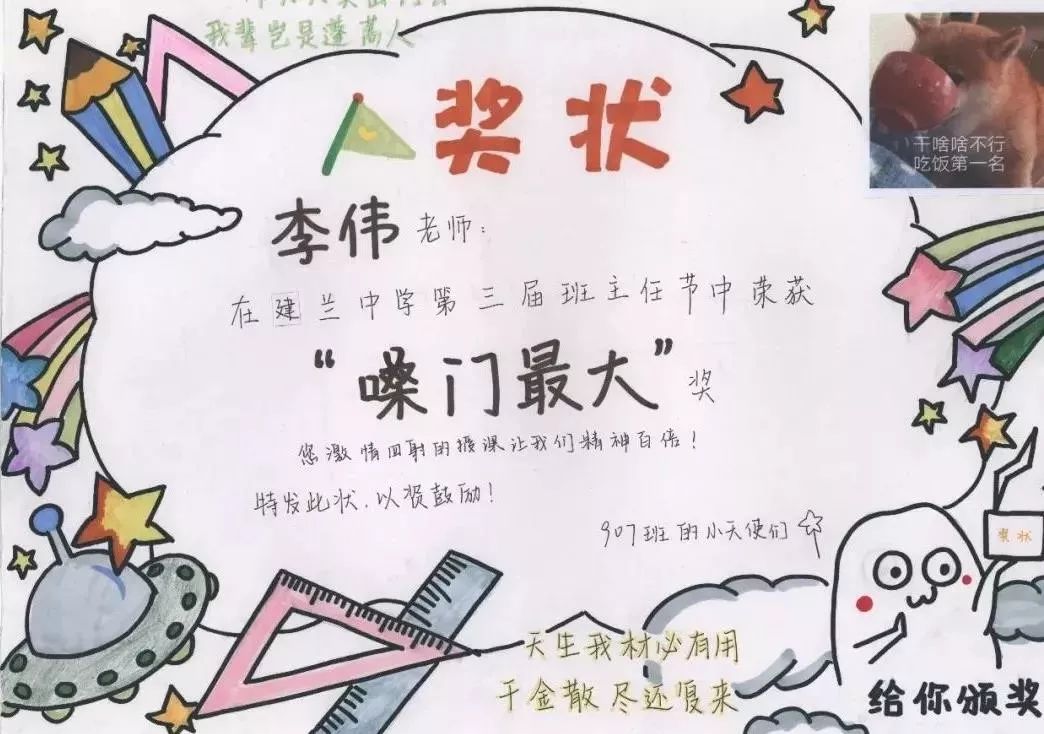 我辈岂是蓬蒿人
奖状
干啥啥不行
吃饭第一名
李伟老师:
在建兰中学第三届班主任节中荣获
“嗓门最大”奖
您激情四射的授课让我们精神百倍!
特发此状,以资鼓励!
907班的小天使们
奖状
天生我材必有用
千金散尽还复来
给你颁奖